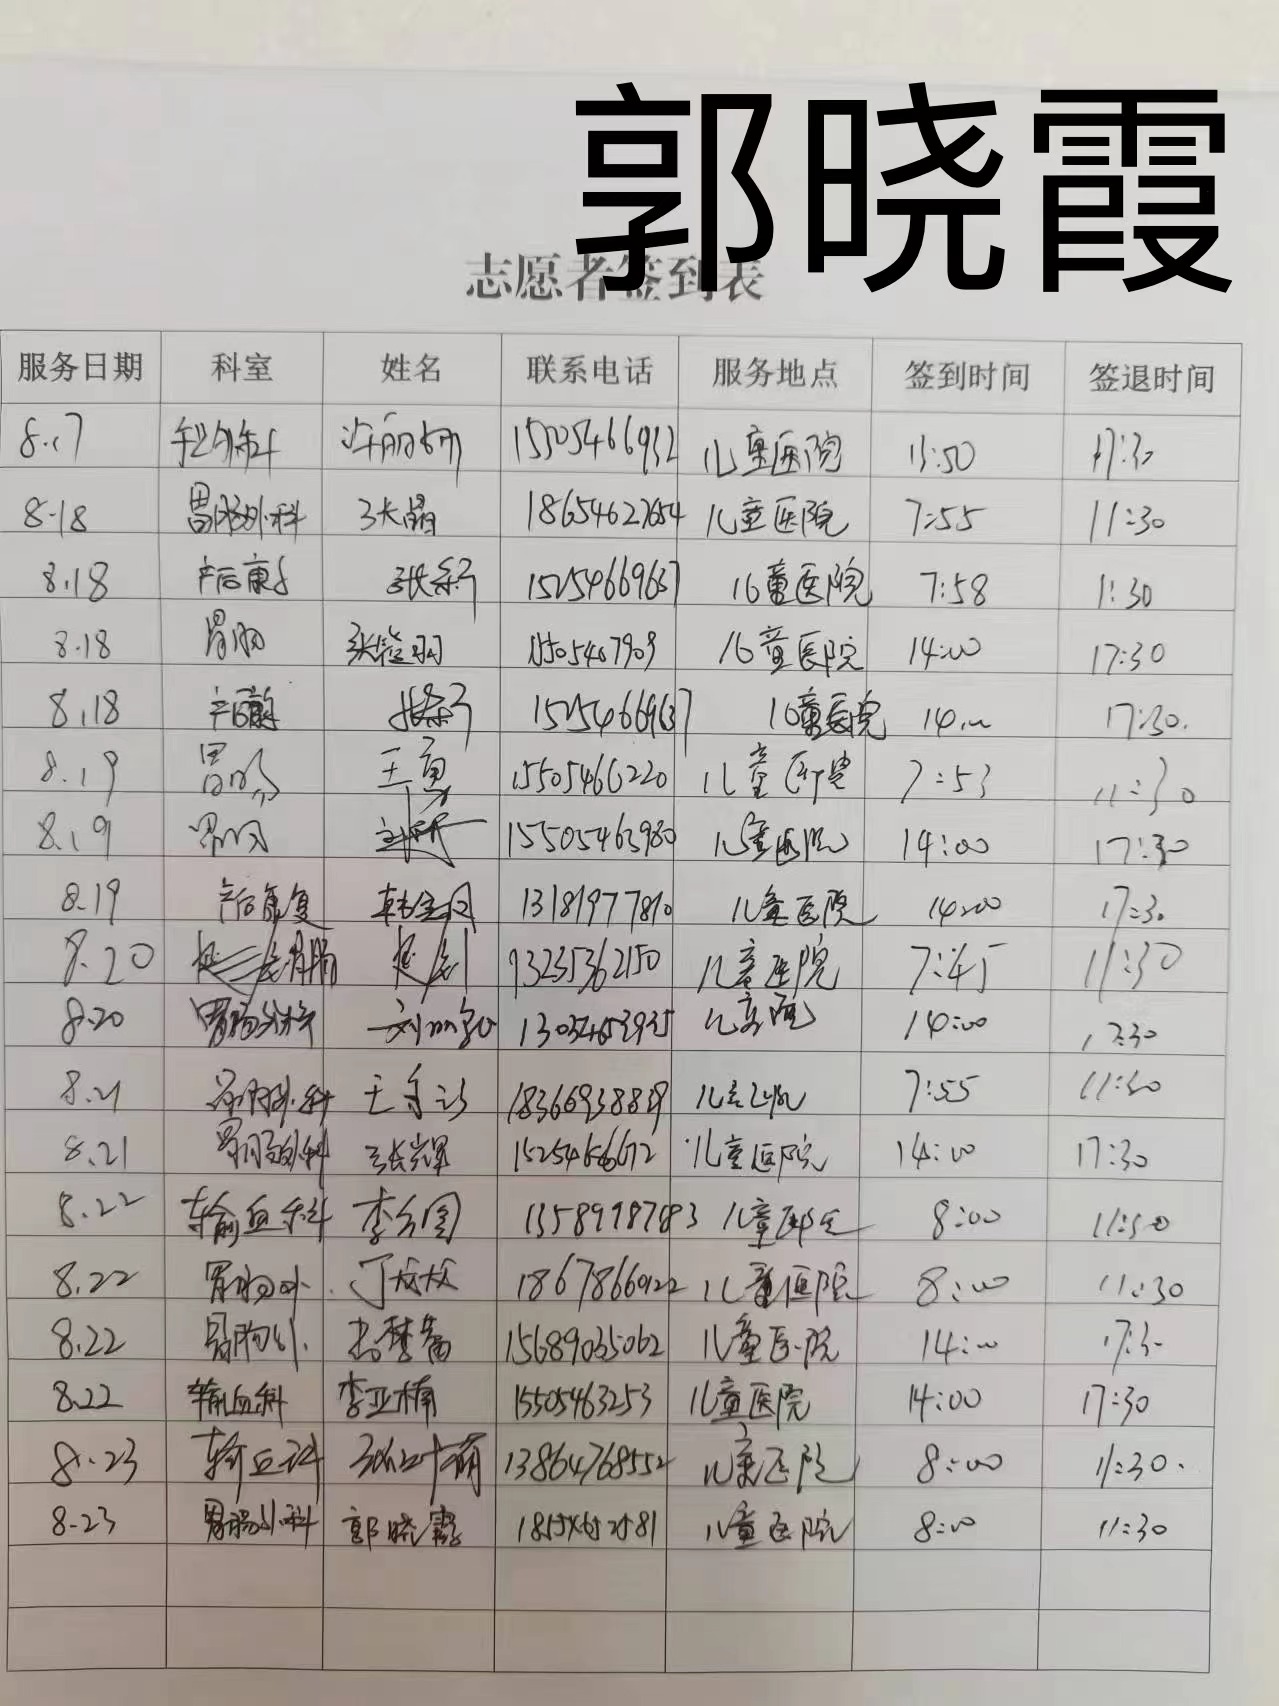 郭晓霞
志愿者签到表
服务日期 科室 姓名 联系电话 服务地点 签到时间 签退时间
8.17 15505466932 儿童医院 13:50 17:30
8.18 胃肠外科 张晶 18654627654 儿童医院 7:55 11:30
8.18 产后康复 15254669637 儿童医院 7:58 11:30
8.18 胃肠 儿童医院 14:00 17:30
8.18 15254669637 儿童医院 14:00 17:30.
8.19 胃肠 王勇 15505466220 儿童医院 7:53 11:30
8.19 胃肠 15505463980 儿童医院 14:00 17:30
8.19 产后康复 13181977810 儿童医院 14:00 17:30
8.20 儿童医院 7:45 11:30
8.20 胃肠外科 儿童医院 14:00 17:30
8.21 胃肠外科 18366938839 7:55 11:30
8.21 胃肠外科 张辉 儿童医院 14:00 17:30
8.22 输血科 13589987783 儿童医院 8:00 11:30
8.22 胃肠外 丁欣欣 18678660122 儿童医院 8:00 11:30
8.22 胃肠外 15689035062 儿童医院 14:00 17:30
8.22 输血科 李亚楠 15505463253 儿童医院 14:00 17:30
8.23 输血科 13864768552 儿童医院 8:00 11:30.
8.23 胃肠外科 郭晓霞 儿童医院 8:00 11:30